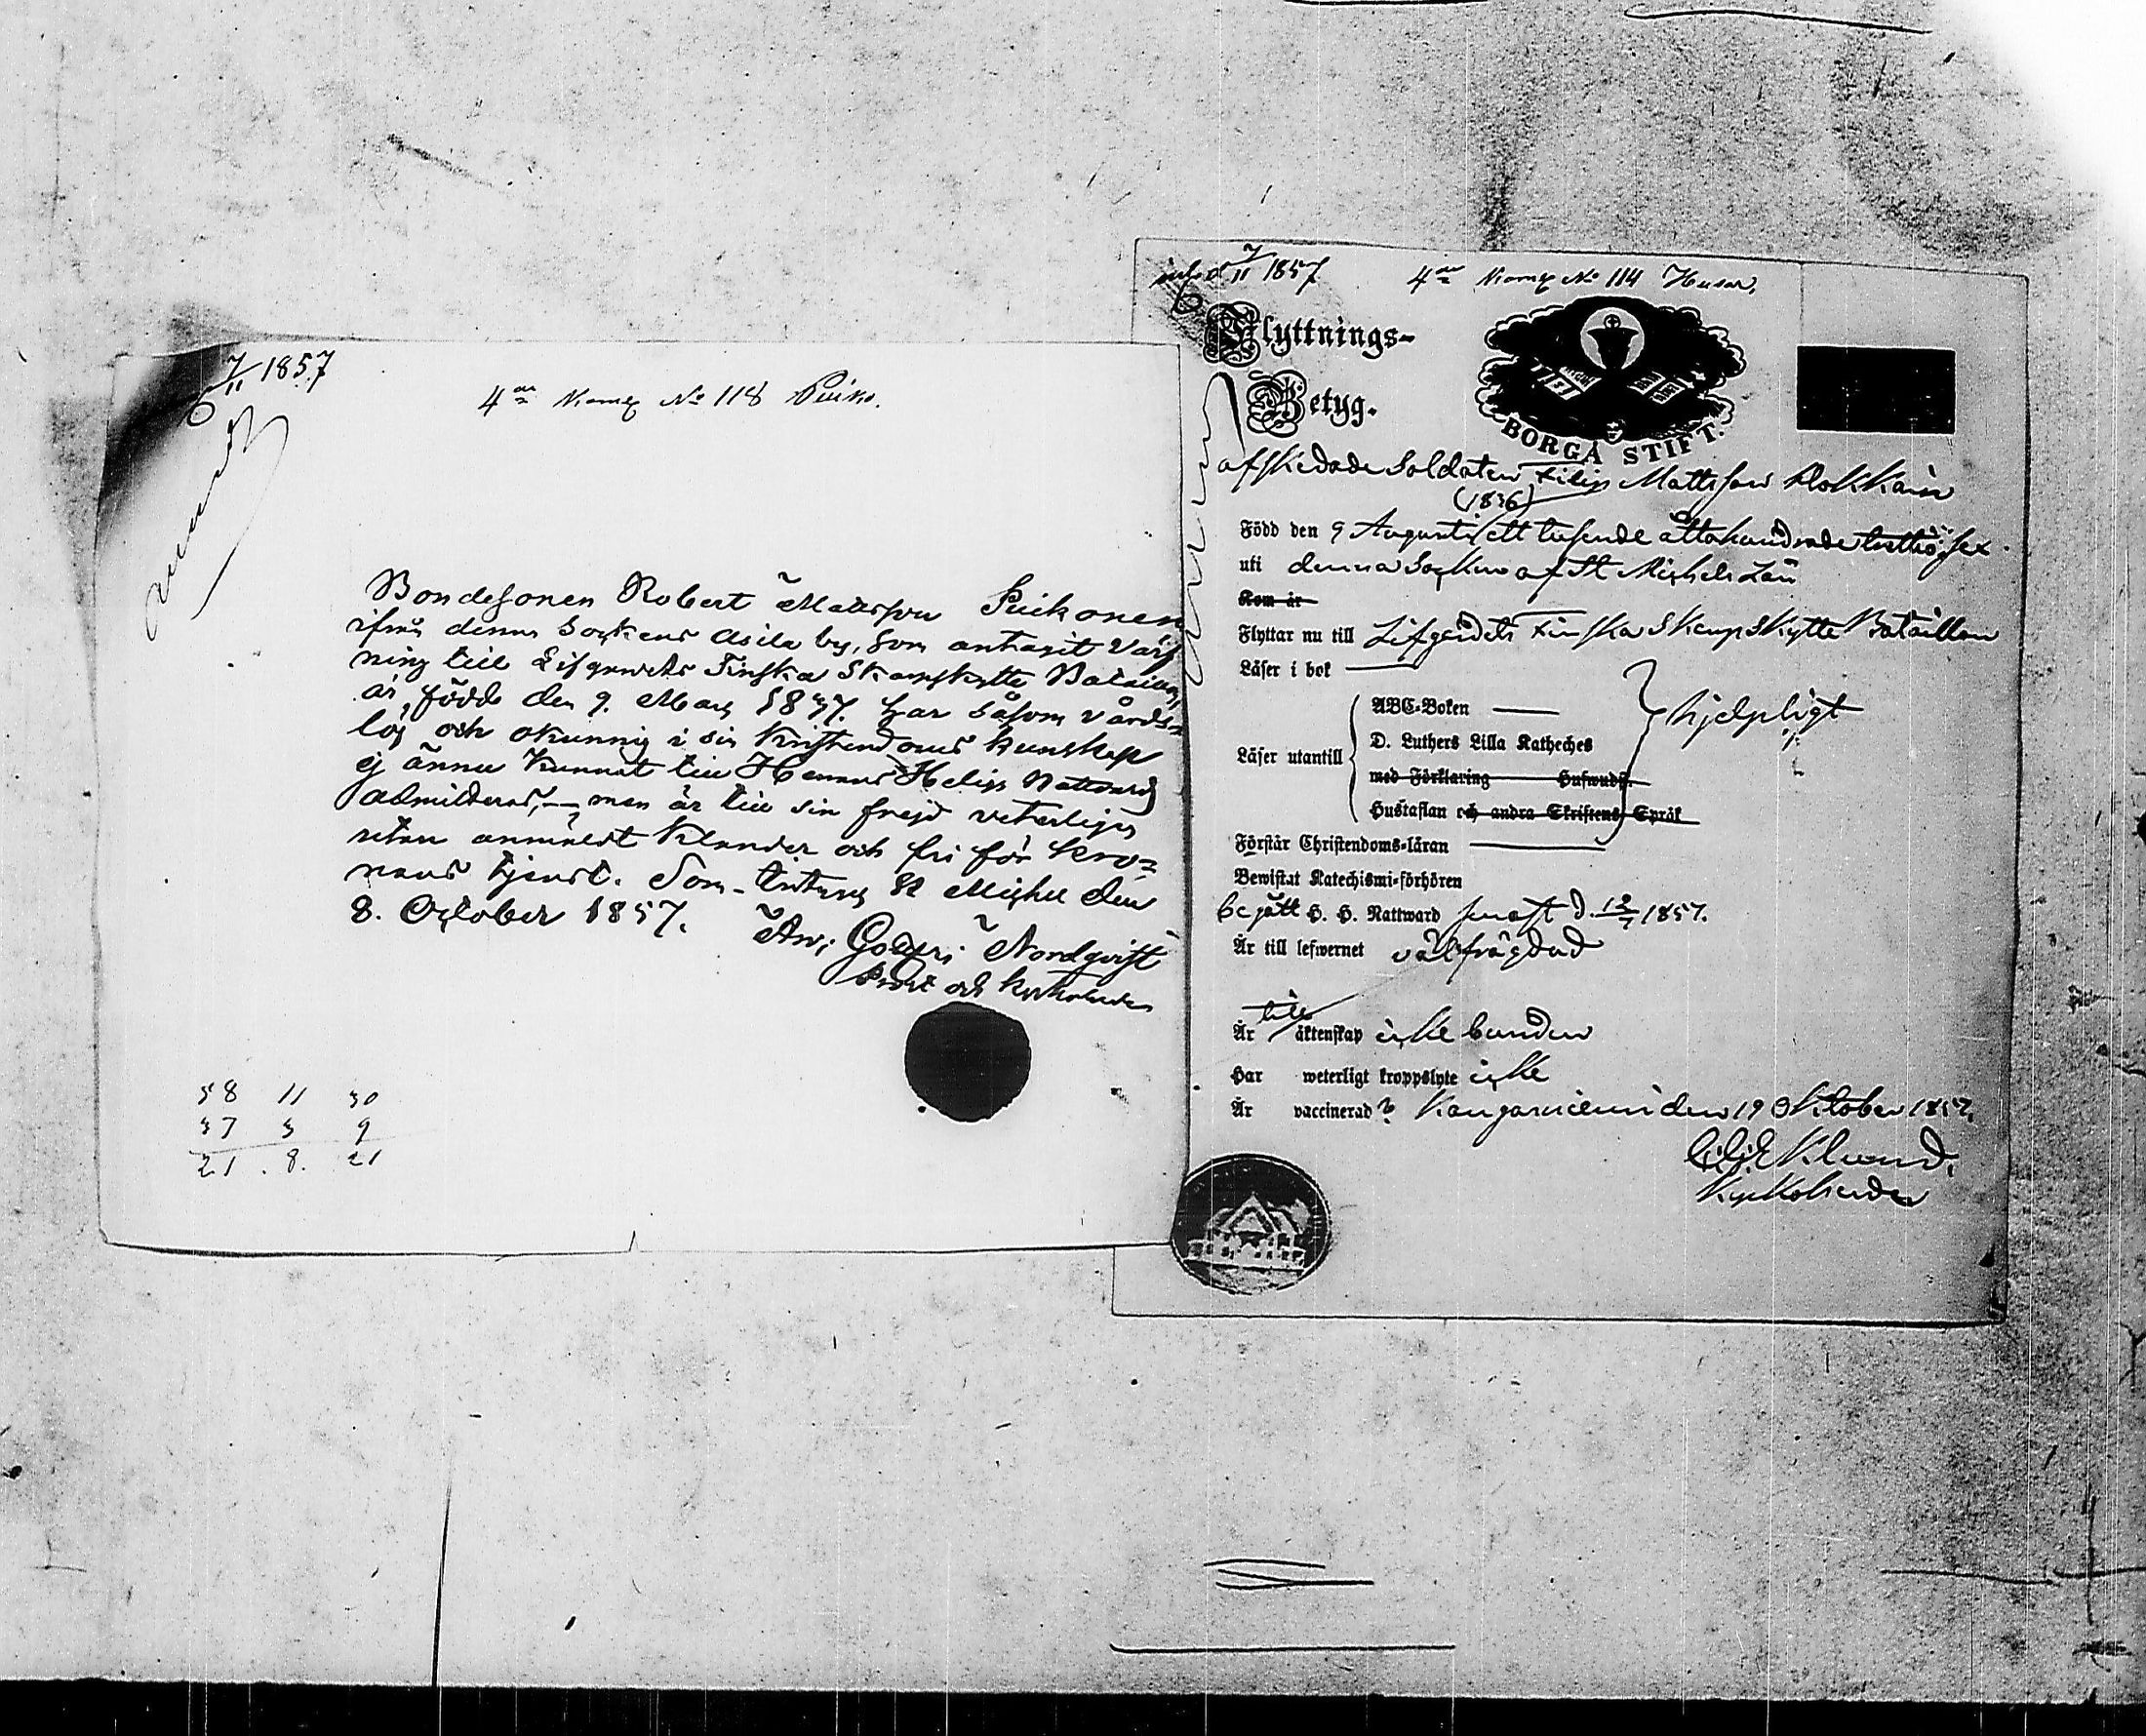 7/11 1857
4de Komp No 118 Puiko.
Bondesonen Robert Mattsson Puikonen
ifrån denna Sockens Asila by, som antagit värf
ning till Lifgardets Finska Skarpskytte Bataillon,
är född den 9. Mars 1837. har såsom vårds-
lös och okunnig i sin Kristendoms kunskap
ej ännu kunnat till Herrans Helige Nattvard
admitteras, — men är till sin frejd veterligen
utan anmäldt klander och fri för kro-
nans tjenst. Som intygas St Michel den
8. October 1857.
Godfri Nordqvist
Prost och kyrkoherde
58 11 30
37 3 9
21. 8. 21
inf. d 7/11 1857
4de Komp No 114 Husar,
Flyttnings-
Betyg.
BORGÅ STIFT.
afskedade Soldaten Filip Mattsson
(1836)
Född den 9 Augusti ett tusende åttahundrade trettiosex
uti denna Socken af St Michels Län
Kom år
Flyttar nu till Lifgardets Finska Skarpskytte Bataillon
Läser i bok
ABC-Boken
hjelpligt
D. Luthers Lilla Katheches
Läser utantill
med Förklaring Hufwudst.
Hustaflan och andra Skriftens Språk
Förstår Christendoms-läran
Bewistat Katechismi-förhören
begått H. H. Nattward senast d. 12/7 1857.
Är till lefwernet välfrägdad
till
Är äktenskap icke bunden
Har weterligt kroppslyte icke
Är vaccinerad? Kangasniemi den 19 Oktober 1857,
Eklund,
Kyrkoherde